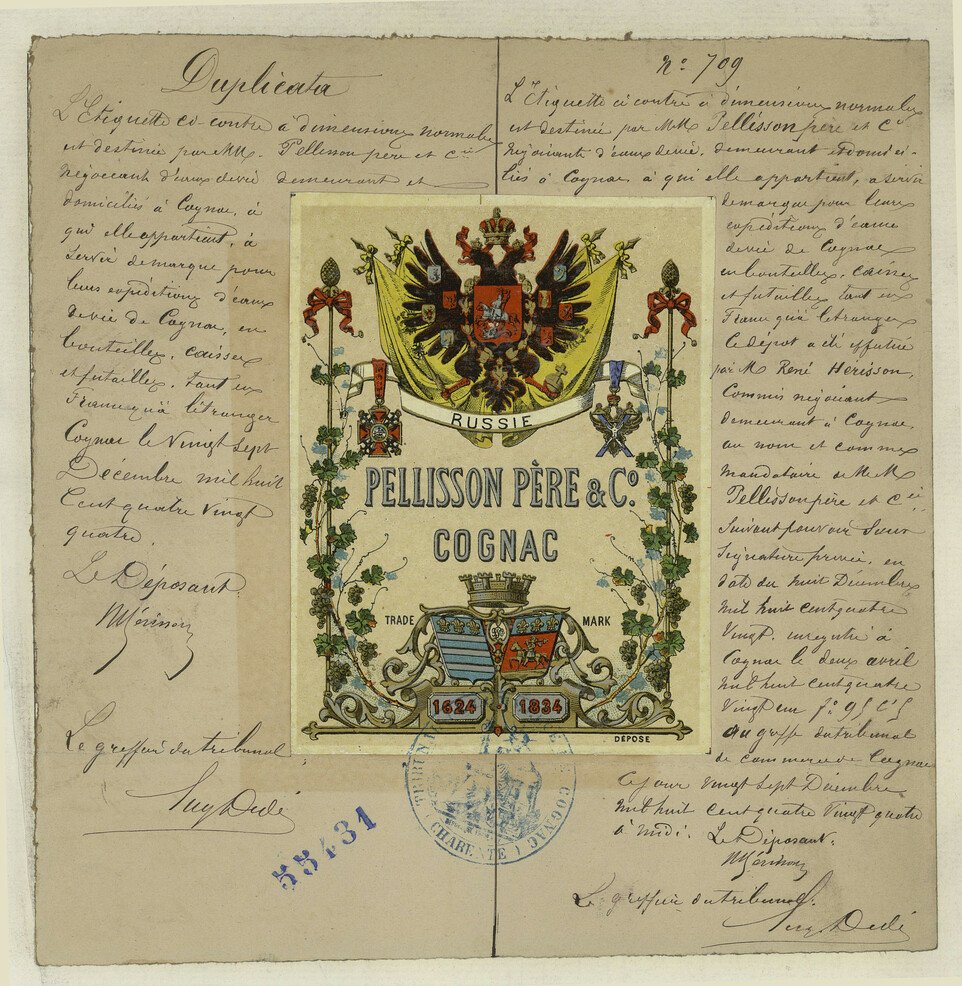 Duplicata
L'Etiquette ci-contre à dimensions normales
est destinée par MM. Pellisson père et Cie
négociants d'eaux devie demeurant et
domiciliés à Cognac, à
qui elle appartient, à
servir de marque pour
leurs expéditions d'eaux
devie de Cognac, en
bouteilles, caisses
et futailles, tant en
France qu'à l'étranger
Cognac le vingt sept
Decembre mil huit
Cent quatre vingt
quatre.
Le Déposant
RHérisson
Le greffier du tribunal
55431
No 709
L'Etiquette ci contre à dimensions normales
est destinée par MM Pellisson père et Cie
négociants d'eaux devie, demeurant et domici-
liés à Cognac à qui elle appartient, a servir
de marque pour leurs
expéditions d'eaux
devie de Cognac
en bouteilles, caisses
et futailles tant en
France qu'à l'étranger
Ce dépot a été effectué
par M René Herisson,
Commis négociant
demeurant à Cognac
au nom et comme
mandataire de MM
Pellisson père et Cie
suivant pouvoir sous
signature privée, en
date du huit Decembre
mil huit cent quatre
vingt. enregistré à
Cognac le deux avril
mil huit cent quatre
vingt un fo 95 Co 5
au greffe du tribunal
de commerce de Cognac
Ce jour vingt sept Décembre
mil huit cent quatre vingt quatre
à midi. Le Déposant.
RHérisson
Le greffier du tribunal.
RUSSIE
PELLISSON PÈRE & Co.
COGNAC
TRADE MARK
1624 1834
DÉPOSÉ
COGNAC
(CHARENTE)